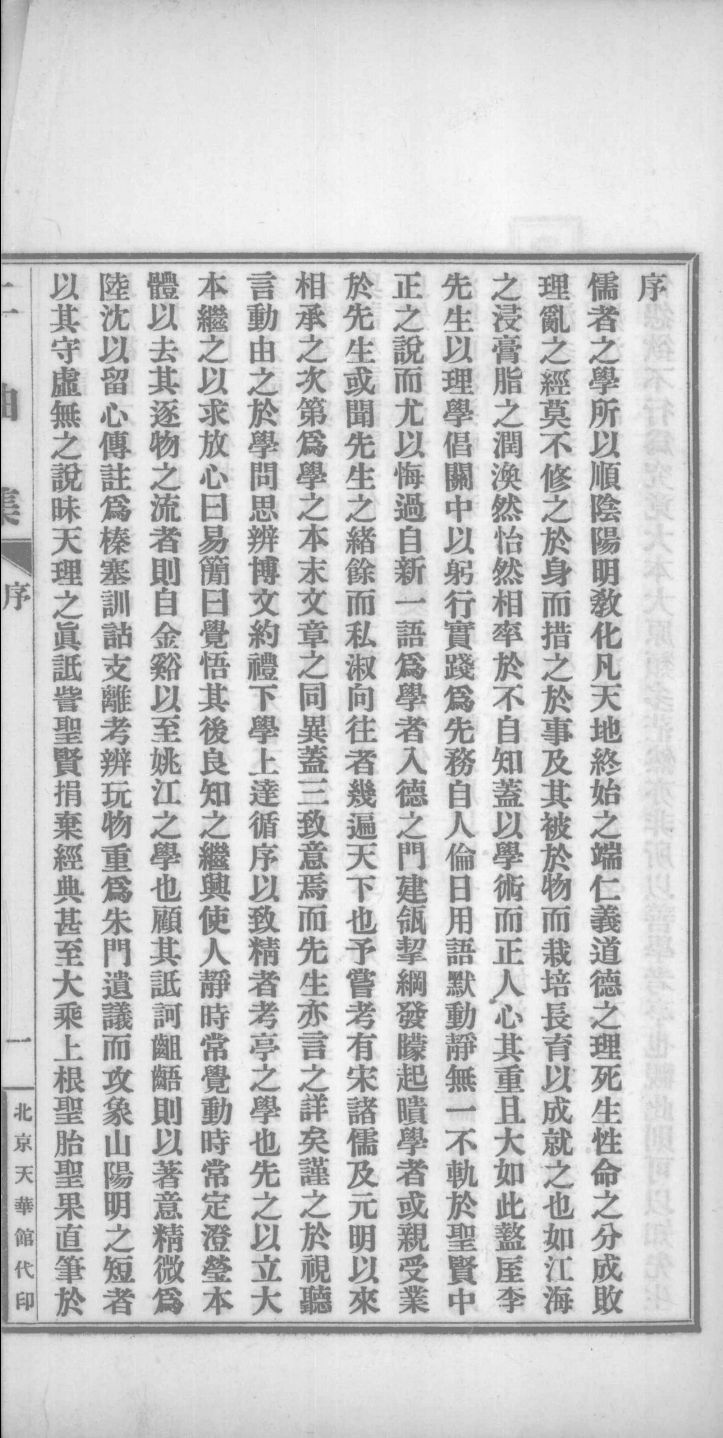 序
儒者之學所以順陰陽明敎化凡天地終始之端仁義道德之理死生性命之分成敗
理亂之經莫不修之於身而措之於事及其被於物而栽培長育以成就之也如江海
之浸膏脂之潤渙然怡然相率於不自知蓋以學術而正人心其重且大如此盩厔李
先生以理學倡關中以躬行實踐爲先務自人倫日用語默動靜無一不軌於聖賢中
正之說而尤以悔過自新一語爲學者入德之門建瓴挈綱發矇起聵學者或親受業
於先生或聞先生之緒餘而私淑向往者幾遍天下也予嘗考有宋諸儒及元明以來
相承之次第爲學之本末文章之同異蓋三致意焉而先生亦言之詳矣謹之於視聽
言動由之於學問思辨博文約禮下學上達循序以致精者考亭之學也先之以立大
本繼之以求放心曰易簡曰覺悟其後良知之繼興使人靜時常覺動時常定澄瑩本
體以去其逐物之流者則自金谿以至姚江之學也顧其詆訶齟齬則以著意精微爲
陸沈以留心傳註爲榛塞訓詁支離考辨玩物重爲朱門遺議而攻象山陽明之短者
以其守虛無之說昧天理之眞詆訾聖賢捐棄經典甚至大乘上根聖胎聖果直筆於
二曲集
序
一
北京天華館代印